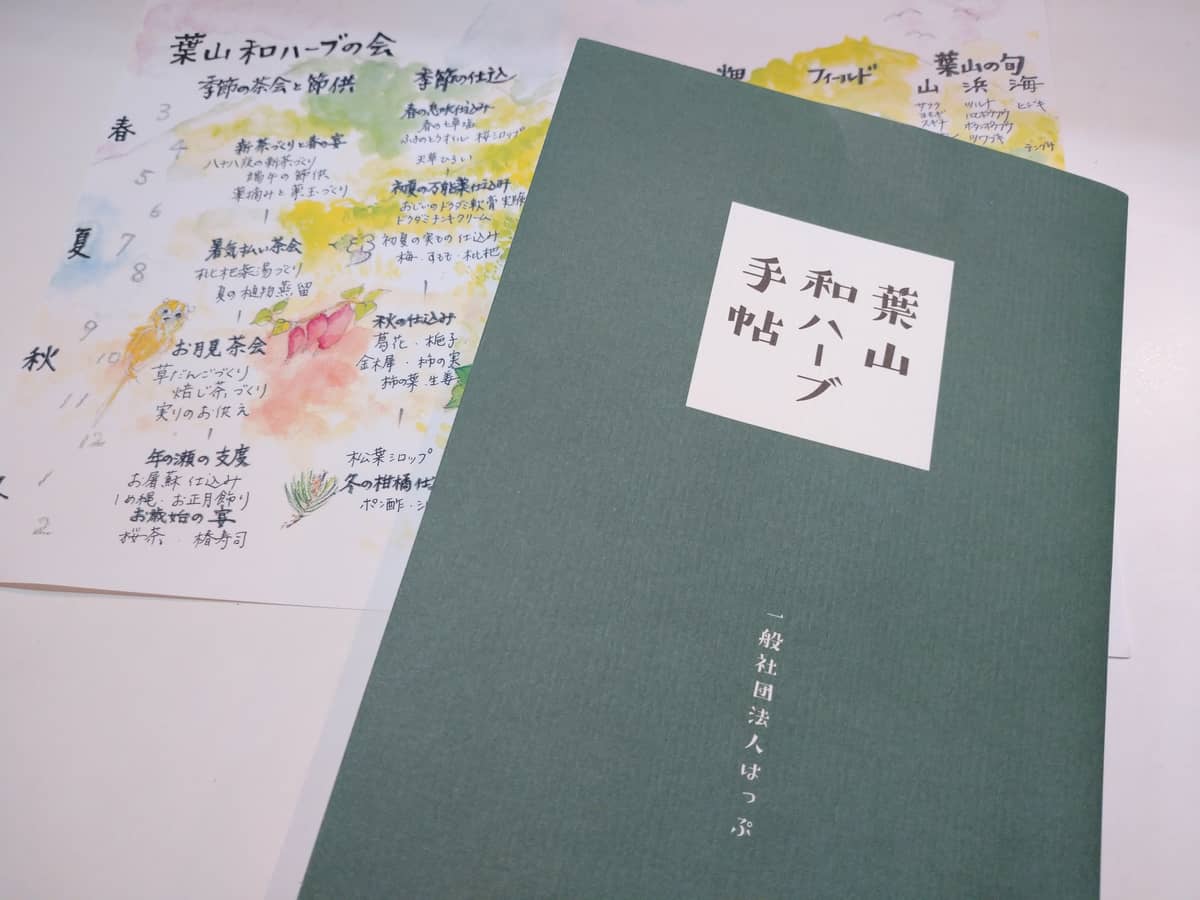 葉山和ハーブの会
季節の茶会と節供
春
3
4
5
6
新茶づくりと春の宴
八十八夜の新茶づくり
端午の節供
薬摘みと薬玉づくり
夏
7
8
暑気払い茶会
枇杷葉湯づくり
夏の植物蒸留
秋
9
10
11
お月見茶会
草だんごづくり
焙じ茶づくり
実りのお供え
12
1
2
年の瀬の支度
お屠蘇仕込み
しめ縄・お正月飾り
お歳始の宴
桜茶・椿寿司
季節の仕込
春の恵み仕込み
春の七草塩
ふきのとうオイル 桜シロップ
天草ひろい
初夏の万能薬仕込み
おじいのドクダミ軟膏実験
ドクダミチンキクリーム
初夏の実もの仕込み
梅・すもも・枇杷
秋の仕込み
葛花・梔子
金木犀・柿の実
柿の葉・生姜
松葉シロップ
冬の柑橘仕
ポン酢・シ
畑
フィールド
葉山の旬
山 浜 海
サクラ
ヨモギ
スギナ
ツルナ
ハマダイコン
ボタンボウフウ
ツワブキ
ヒジキ
テングサ
葉山
和ハーブ
手帖
一般社団法人はっぷ